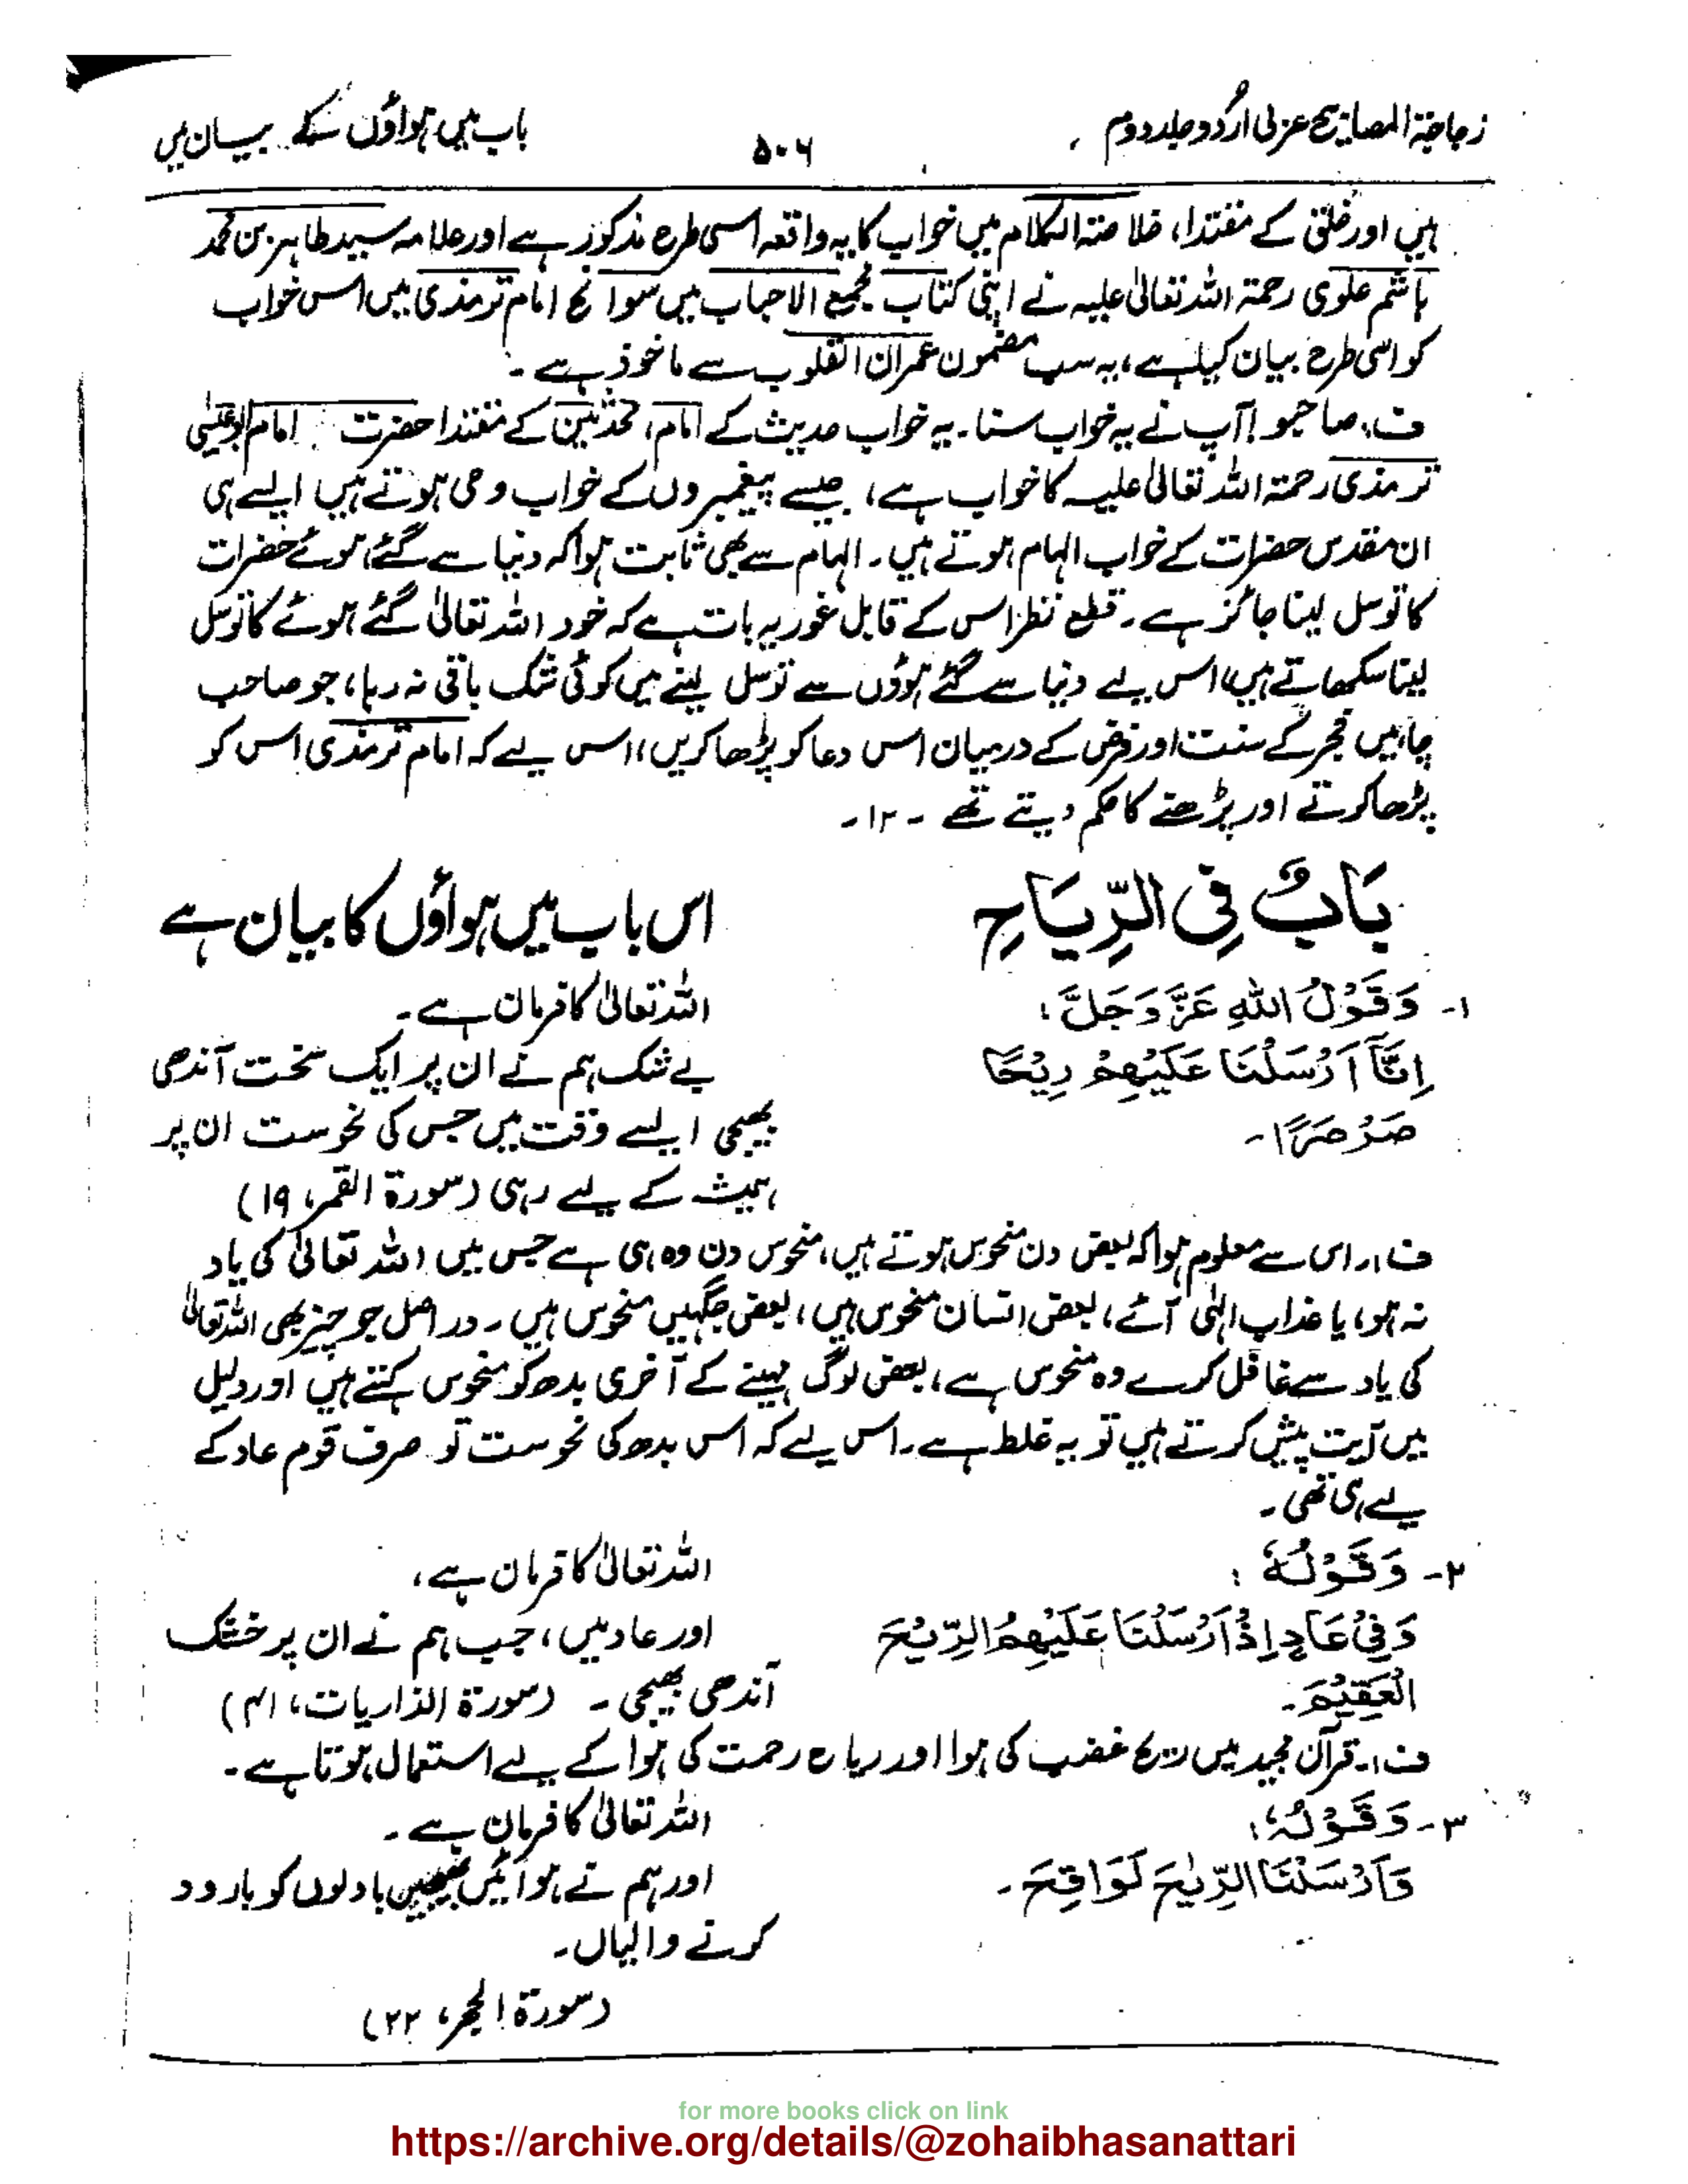 زجاجۃ المصابیح عربی اُردو جلد دوم
۵۰۶
باب میں ہواؤں کے بیان میں
ہیں اور خلق کے مقتدا، خلاصتہ الکلام میں خواب کا یہ واقعہ اسی طرح مذکور ہے اور علامہ سید طاہر بن محمد
ہاشم علوی رحمتہ اللہ تعالیٰ علیہ نے اپنی کتاب مجمع الاحباب میں سوانح امام ترمذی میں اس خواب
کو اسی طرح بیان کیا ہے، یہ سب مضمون عمران القلوب سے ماخوذ ہے ۔
ف: صاحبو! آپ نے یہ خواب سنا۔ یہ خواب حدیث کے امام، محدثین کے مقتدا حضرت امام ابو عیسیٰ
ترمذی رحمتہ اللہ تعالیٰ علیہ کا خواب ہے، جیسے پیغمبروں کے خواب وحی ہوتے ہیں ایسے ہی
ان مقدس حضرات کے خواب الہام ہوتے ہیں۔ الہام سے بھی ثابت ہوا کہ دنیا سے گئے ہوئے حضرات
کا توسل لینا جائز ہے۔ قطع نظر اس کے قابل غور یہ بات ہے کہ خود اللہ تعالیٰ گئے ہوئے کا توسل
لینا سکھاتے ہیں، اس لیے دنیا سے گئے ہوؤں سے توسل لینے میں کوئی شک باقی نہ رہا، جو صاحب
چاہیں فجر کے سنت اور فرض کے درمیان اس دعا کو پڑھا کریں، اس لیے کہ امام ترمذی اس کو
پڑھا کرتے اور پڑھنے کا حکم دیتے تھے ۔ ۱۲۔
بَابٌ فِی الرِّیَاحِ
اس باب میں ہواؤں کا بیان ہے
۱- وَقَوْلُ اللهِ عَزَّ وَجَلَّ:
اِنَّآ اَرْسَلْنَا عَلَیْهِمْ رِیْحًا
صَرْصَرًا۔
اللہ تعالیٰ کا فرمان ہے۔
بے شک ہم نے ان پر ایک سخت آندھی
بھیجی ایسے وقت میں جس کی نحوست ان پر
ہمیشہ کے لیے رہی (سورۃ القمر، ۱۹)
ف:۔ اس سے معلوم ہوا کہ بعض دن منحوس ہوتے ہیں، منحوس دن وہ ہی ہے جس میں اللہ تعالیٰ کی یاد
نہ ہو، یا عذاب الٰہی آئے، بعض انسان منحوس ہیں، بعض جگہیں منحوس ہیں۔ در اصل جو چیز بھی اللہ تعالیٰ
کی یاد سے غافل کرے وہ منحوس ہے، بعض لوگ مہینے کے آخری بدھ کو منحوس کہتے ہیں اور دلیل
میں آیت پیش کرتے ہیں تو یہ غلط ہے۔ اس لیے کہ اس بدھ کی نحوست تو صرف قوم عاد کے
لیے ہی تھی ۔
۲- وَقَوْلُهٗ :
وَفِیْ عَادٍ اِذْ اَرْسَلْنَا عَلَیْهِمُ الرِّیْحَ
الْعَقِیْمَ۔
اللہ تعالیٰ کا فرمان ہے،
اور عاد میں، جب ہم نے ان پر خشک
آندھی بھیجی ۔ (سورۃ الذاریات، ۴۱)
ف:۔ قرآن مجید میں ریح غضب کی ہوا اور ریاح رحمت کی ہوا کے لیے استعمال ہوتا ہے۔
۳- وَقَوْلُهٗ:
وَاَرْسَلْنَا الرِّیٰحَ لَوَاقِحَ ۔
اللہ تعالیٰ کا فرمان ہے ۔
اور ہم نے ہوائیں بھیجیں بادلوں کو بارور
کرنے والیاں۔
(سورۃ الحجر، ۲۲)
for more books click on link
https://archive.org/details/@zohaibhasanattari